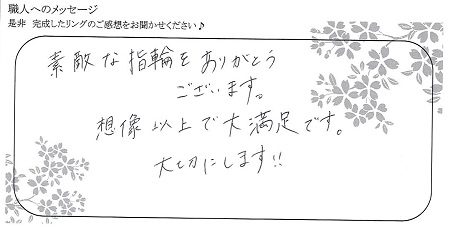 職人へのメッセージ
是非 完成したリングのご感想をお聞かせください♪
素敵な指輪をありがとう
ございます。
想像以上で大満足です。
大切にします!!